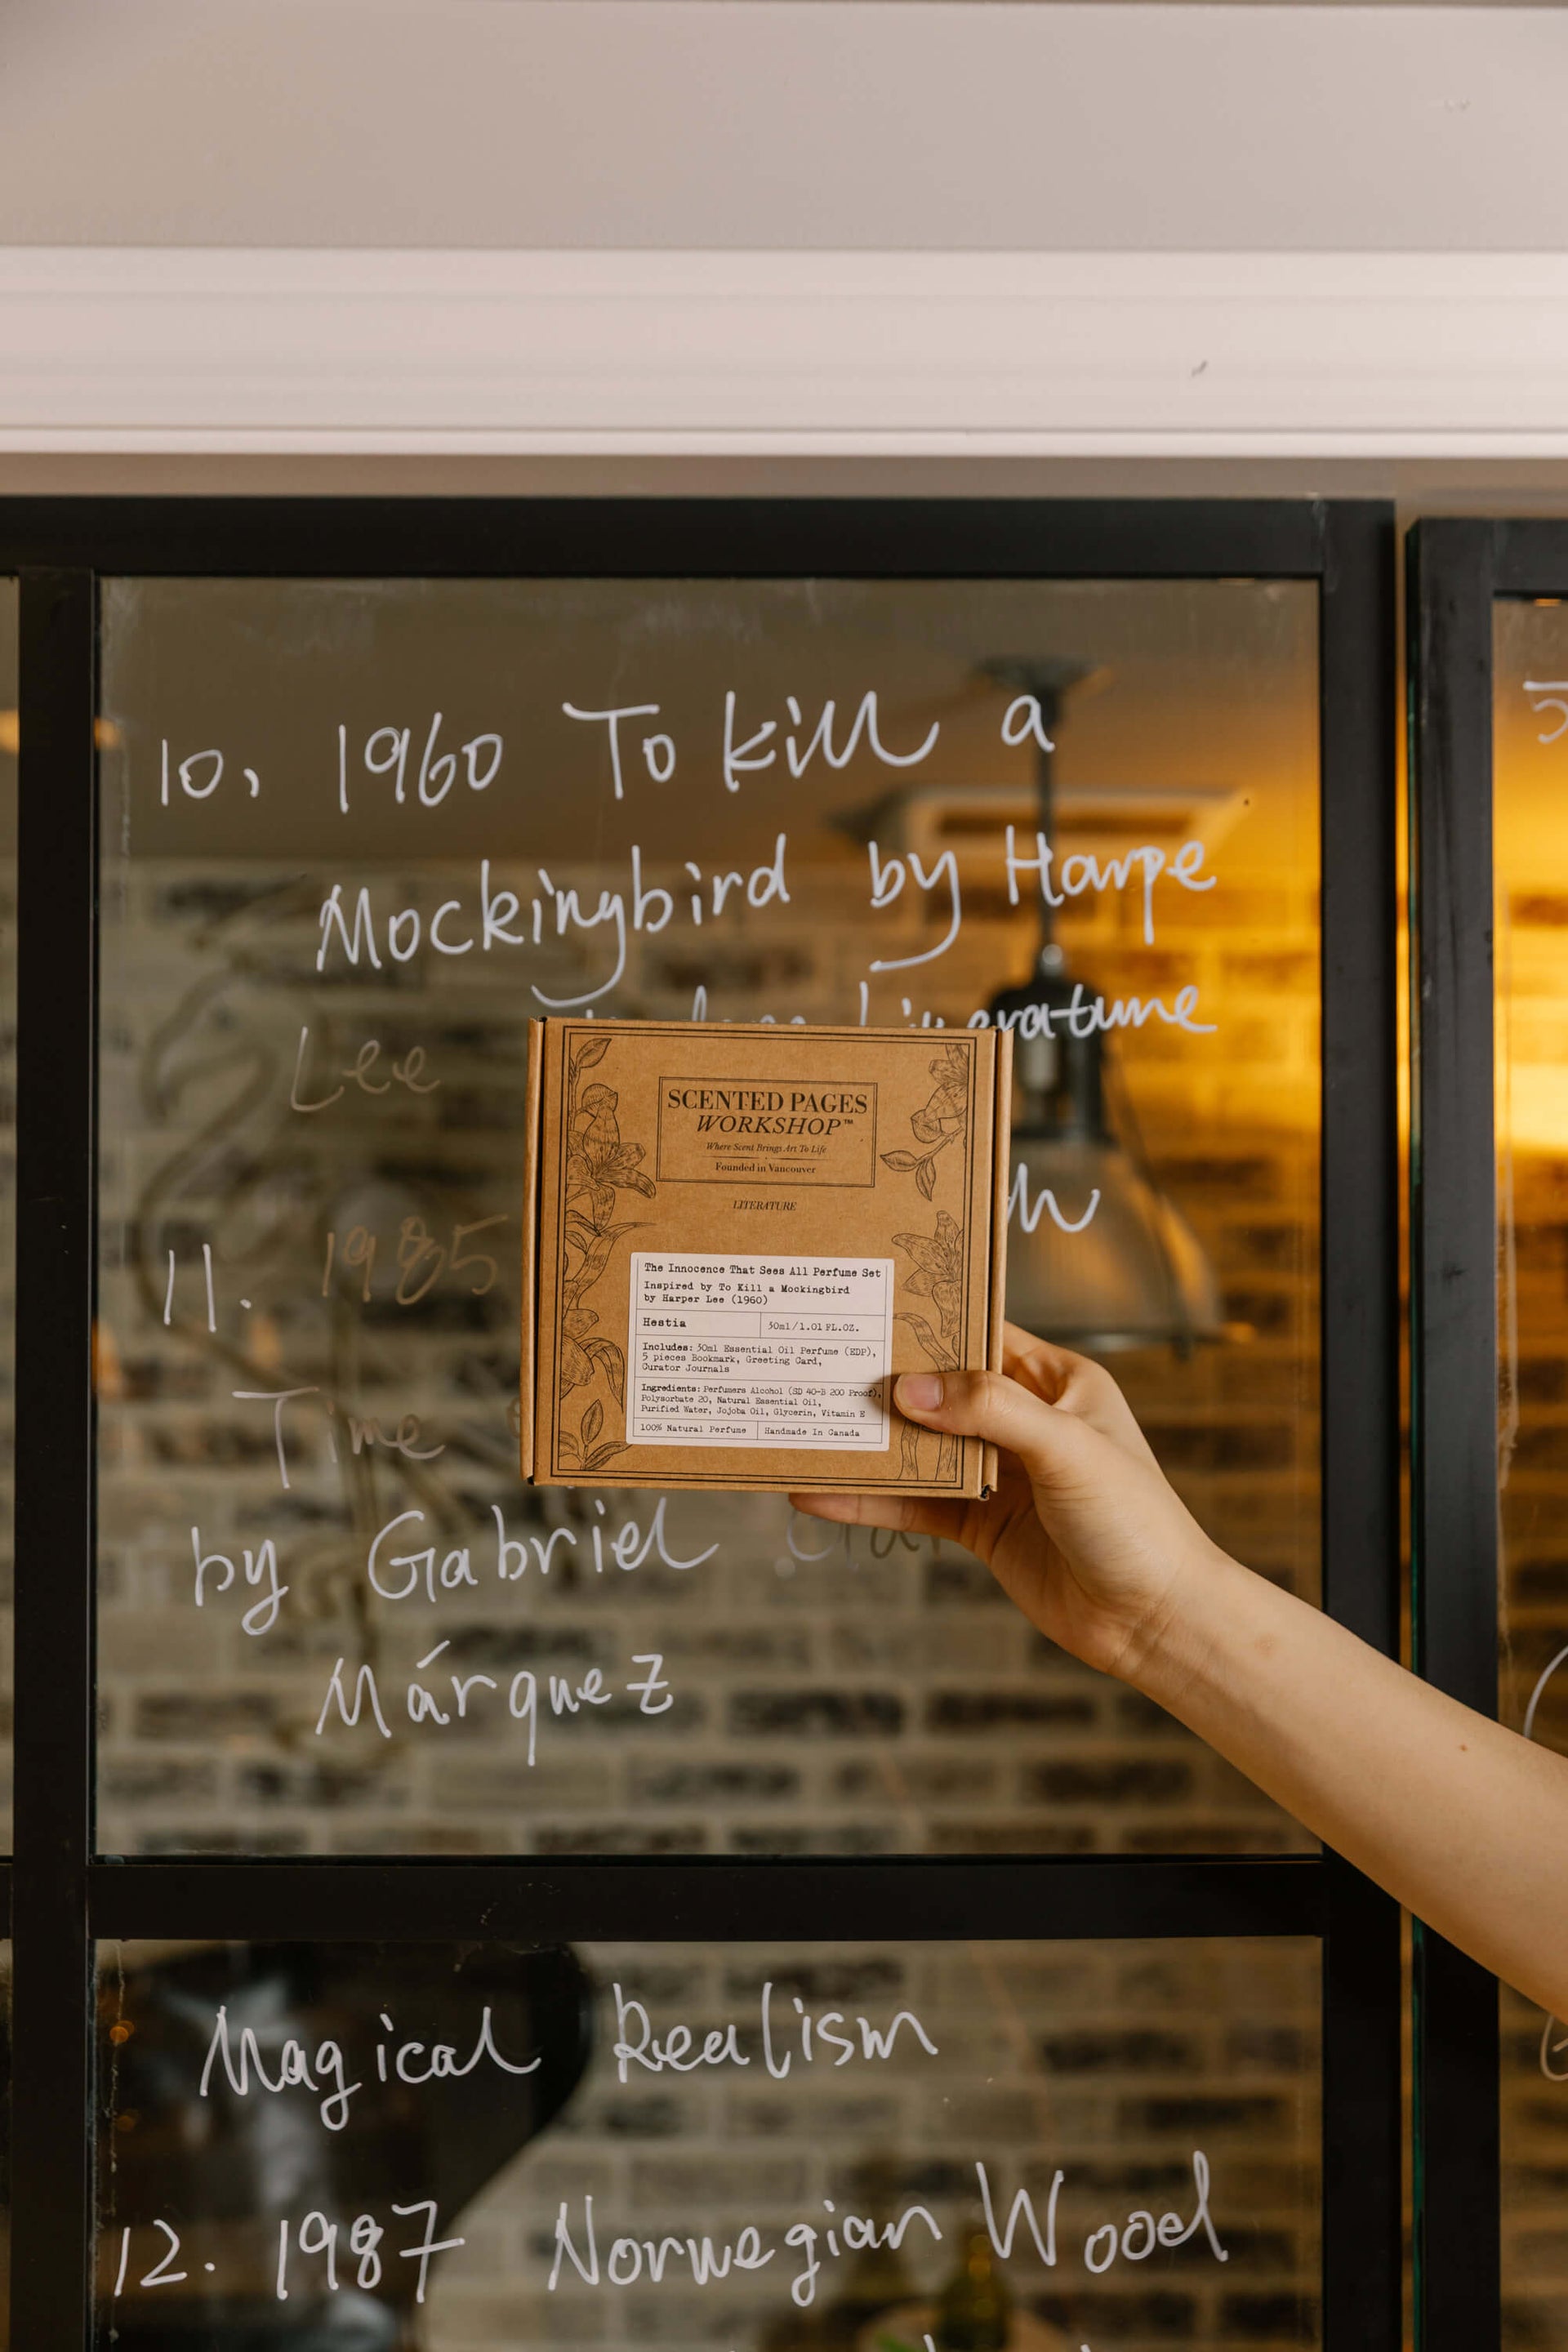 10, 1960 To kill a
Mockingbird by Harpe
Literature
Lee
11. 1985
Time
by Gabriel
Márquez
Magical Realism
12. 1987 Norwegian Wood
SCENTED PAGES
WORKSHOP™
Where Scent Brings Art To Life
Founded in Vancouver
LITERATURE
The Innocence That Sees All Perfume Set
Inspired by To Kill a Mockingbird
by Harper Lee (1960)
Hestia
30ml/1.01 FL.OZ.
Includes: 30ml Essential Oil Perfume (EDP),
5 pieces Bookmark, Greeting Card,
Curator Journals
Ingredients: Perfumers Alcohol (SD 40-B 200 Proof),
Polysorbate 20, Natural Essential Oil,
Purified Water, Jojoba Oil, Glycerin, Vitamin E
100% Natural Perfume
Handmade In Canada